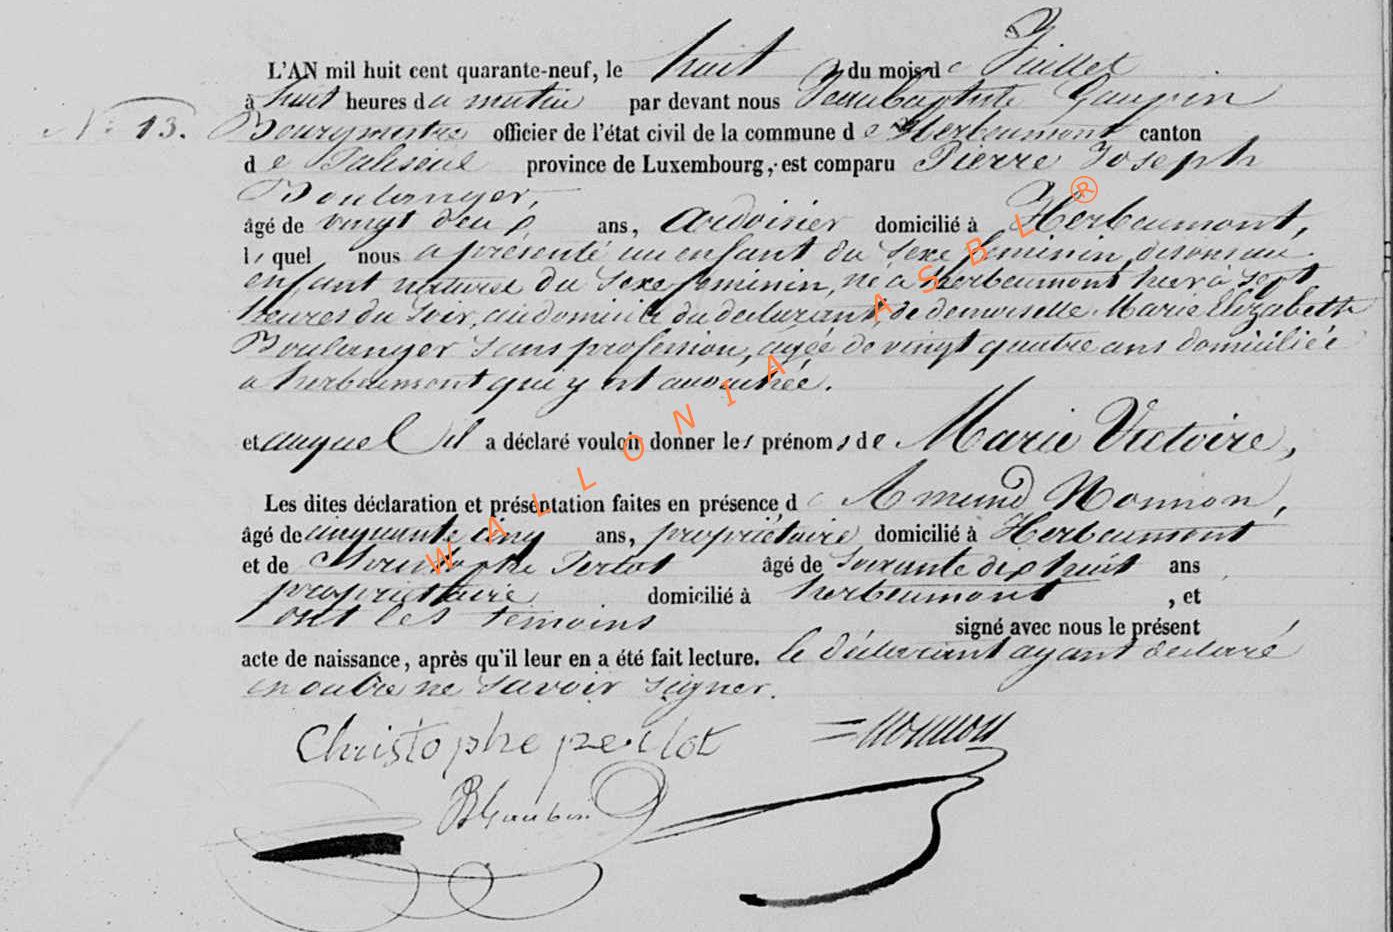 L'AN mil huit cent quarante-neuf, le huit du mois de Juillet
à huit heures du matin par devant nous Jean Baptiste Gaupin
N° 13. Bourgmestre officier de l'état civil de la commune de Herbeumont canton
de Paliseul province de Luxembourg, est comparu Pierre Joseph
Boulanger,
âgé de vingt deux ans, ardoisier domicilié à Herbeumont,
lequel nous a présenté un enfant du sexe feminin,
enfant naturel du sexe feminin, né a herbeumont hier à sept
heures du soir, au domicile du declarant, de demoiselle Marie Elizabeth
Boulanger sans profession, agée de vingt quatre ans domiciliée
a herbeumont qui y est accouchée.
et auquel il a déclaré vouloir donner les prénoms de Marie Victoire,
Les dites déclaration et présentation faites en présence de Amand Nonnon,
âgé de cinquante cinq ans, propriétaire domicilié à Herbeumont
et de Christophe Perlot âgé de soixante dix huit ans
propriétaire domicilié à herbeumont, et
ont les temoins signé avec nous le présent
acte de naissance, après qu'il leur en a été fait lecture. le déclarant ayant declaré
en outre ne savoir signer.
Christophe perlot Nonnon
WALLONIA ASBL ®